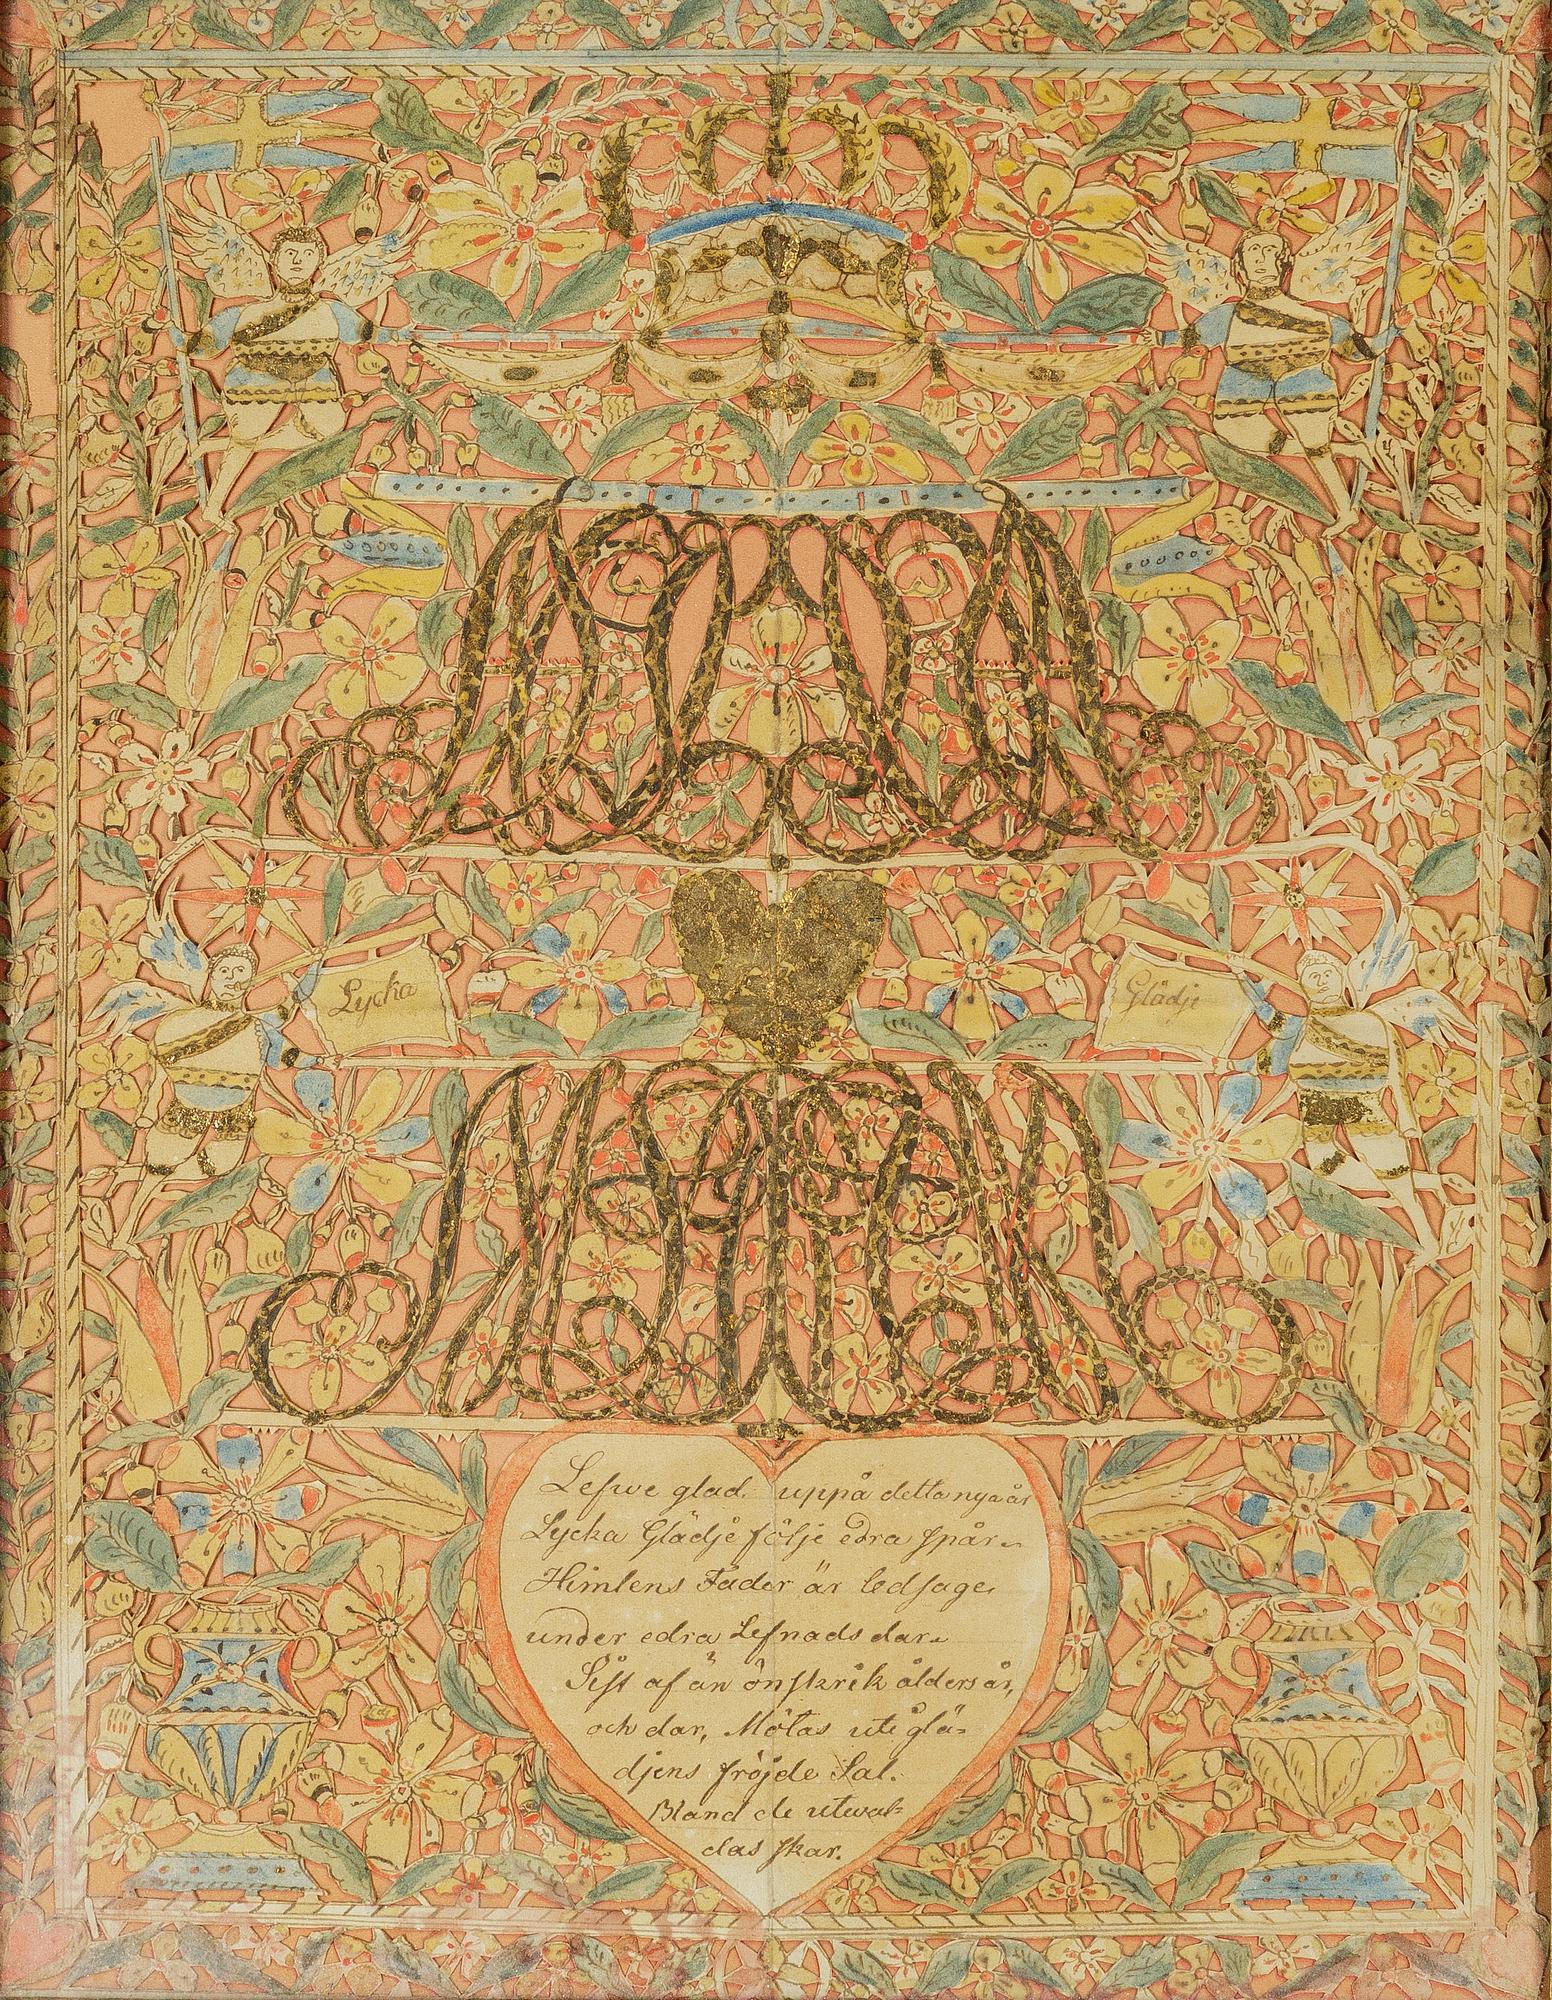 Lycka
Glädje
Lefwe glad. uppå detta nya år
Lycka Glädje följe edra spår.
Himlens Fader är ledsage,
under edra Lefnads dar.
Sist af än önskrik ålders år,
och dar, Mötas uti glä-
djens fröjde Sal.
Bland de utwal-
das skar.